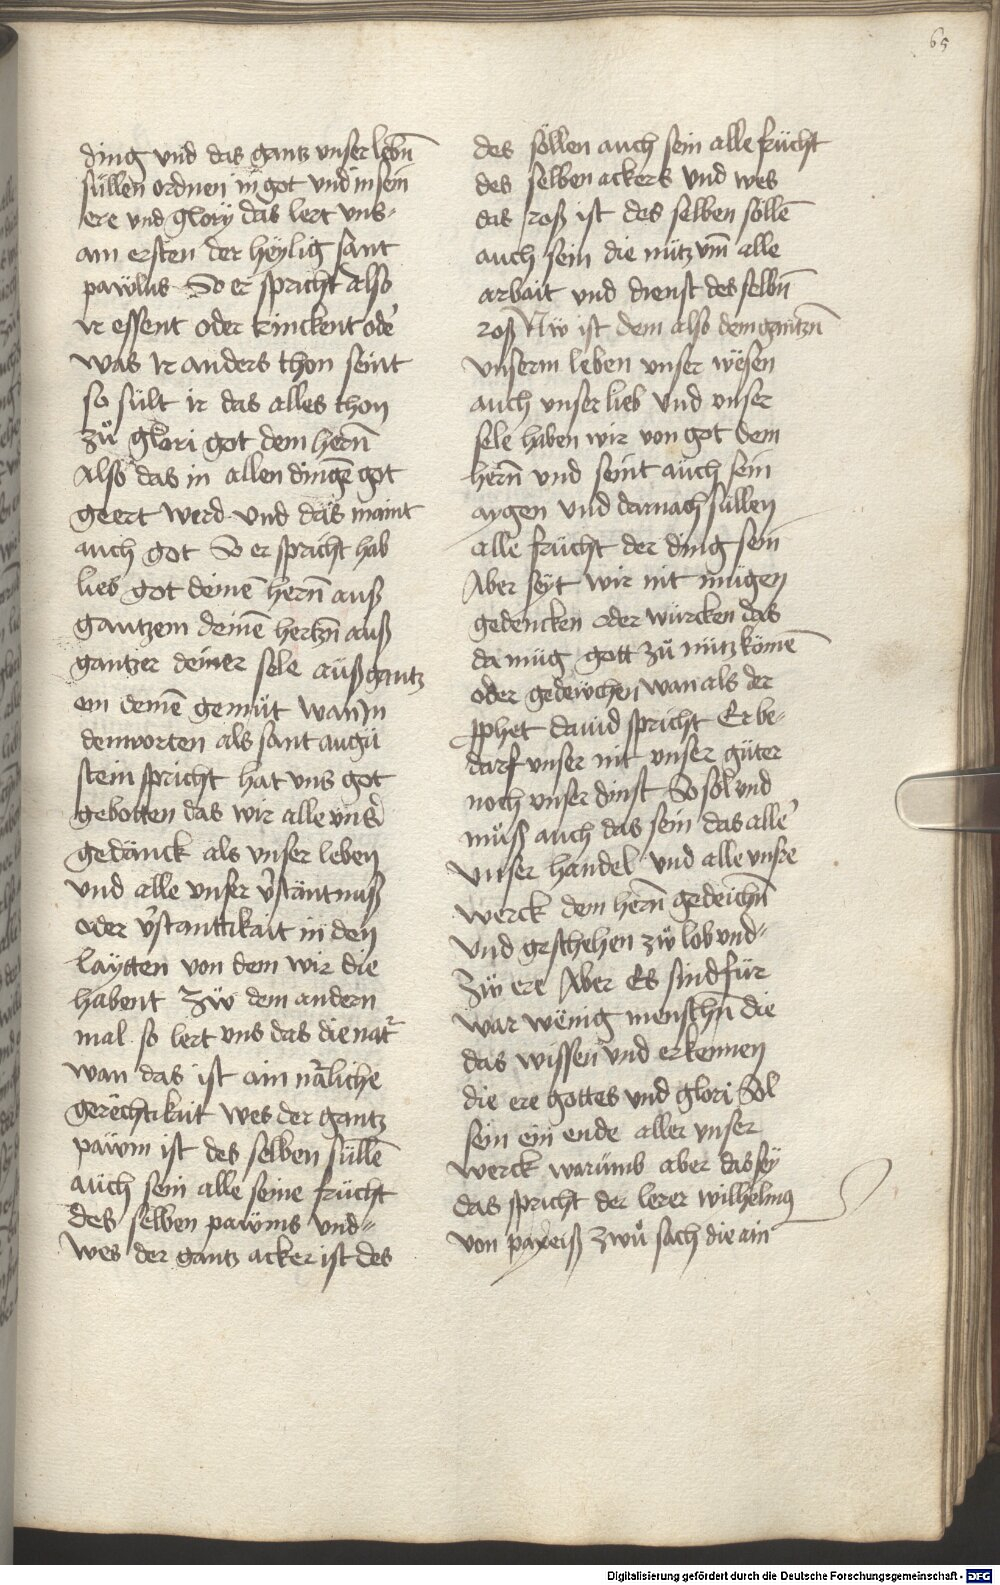 65
ding vnd das gantz vnser lebn̄
süllen ordnen in got vnd in sein
ere vnd glory das lert vns-
am ersten der heÿlig sant
pawlus So er spricht also
Ir essent oder trinckent oder̓
was Ir anders thon seint
so sült ir das alles thon
zů glori got dem hern̄
Also das in allen dingē got
geert werd vnd das maint
auch got So er spricht hab
lieb got deinē hern̄ auß
gantzem deinē hertzn̄ auß
gantzer deiner sele auß gantz
em deinē gemüt wan In
den worten als sant augu
stein spricht hat vns got
gebotten das wir alle vnsr̄
gedänck als vnser leben
vnd alle vnser v̓stäntnuß
oder v̓stanttikait in den
laÿtten von dem wir die
habent Zw̋ dem andern
mal so lert vns das die nat̓
wan das ist ain nat̓liche
gerechtikait wes der gantz
pawm ist des selben süllē
auch sein alle seine frücht
des selben pawms vnd-
wes der gantz acker ist des
des söllen auch sein alle frücht
des selben ackers vnd wes
das roß ist des selben söllē
auch sein die nütz vm̄ alle
arbait vnd dienst des selbn̄
roß Nw̋ ist dem also dem gantzn̄
vnserm leben vnser wesen
auch vnser lieb vnd vnser
sele haben wir von got dem
hern̄ vnd seint auch sein
aygen vnd darnach süllen
alle frücht der ding sein
Aber seÿt wir nit mügen
gedencken oder würcken das
da müg gott zů nütz kömē
oder gedewchen wan als der
ꝓphet dauid spricht Er be-
darf vnser nit vnser güter
noch vnser dinst So sol vnd
můß auch das sein das alle̓
vnser handel vnd alle vnsre
werck dem hern̄ gedeichn̄
vnd geschehen zw̋ lob vnd-
Zw̋ ere Aber Es sind für
war wenig menschn̄ die
das wissen vnd erkennen
die ere gottes vnd glori Sol
sein ein ende aller vnser
werck warümb aber das seÿ
das spricht der lerer wilhelmꝯ
von pareiß zwů sach die ain
Digitalisierung gefördert durch die Deutsche Forschungsgemeinschaft - DFG